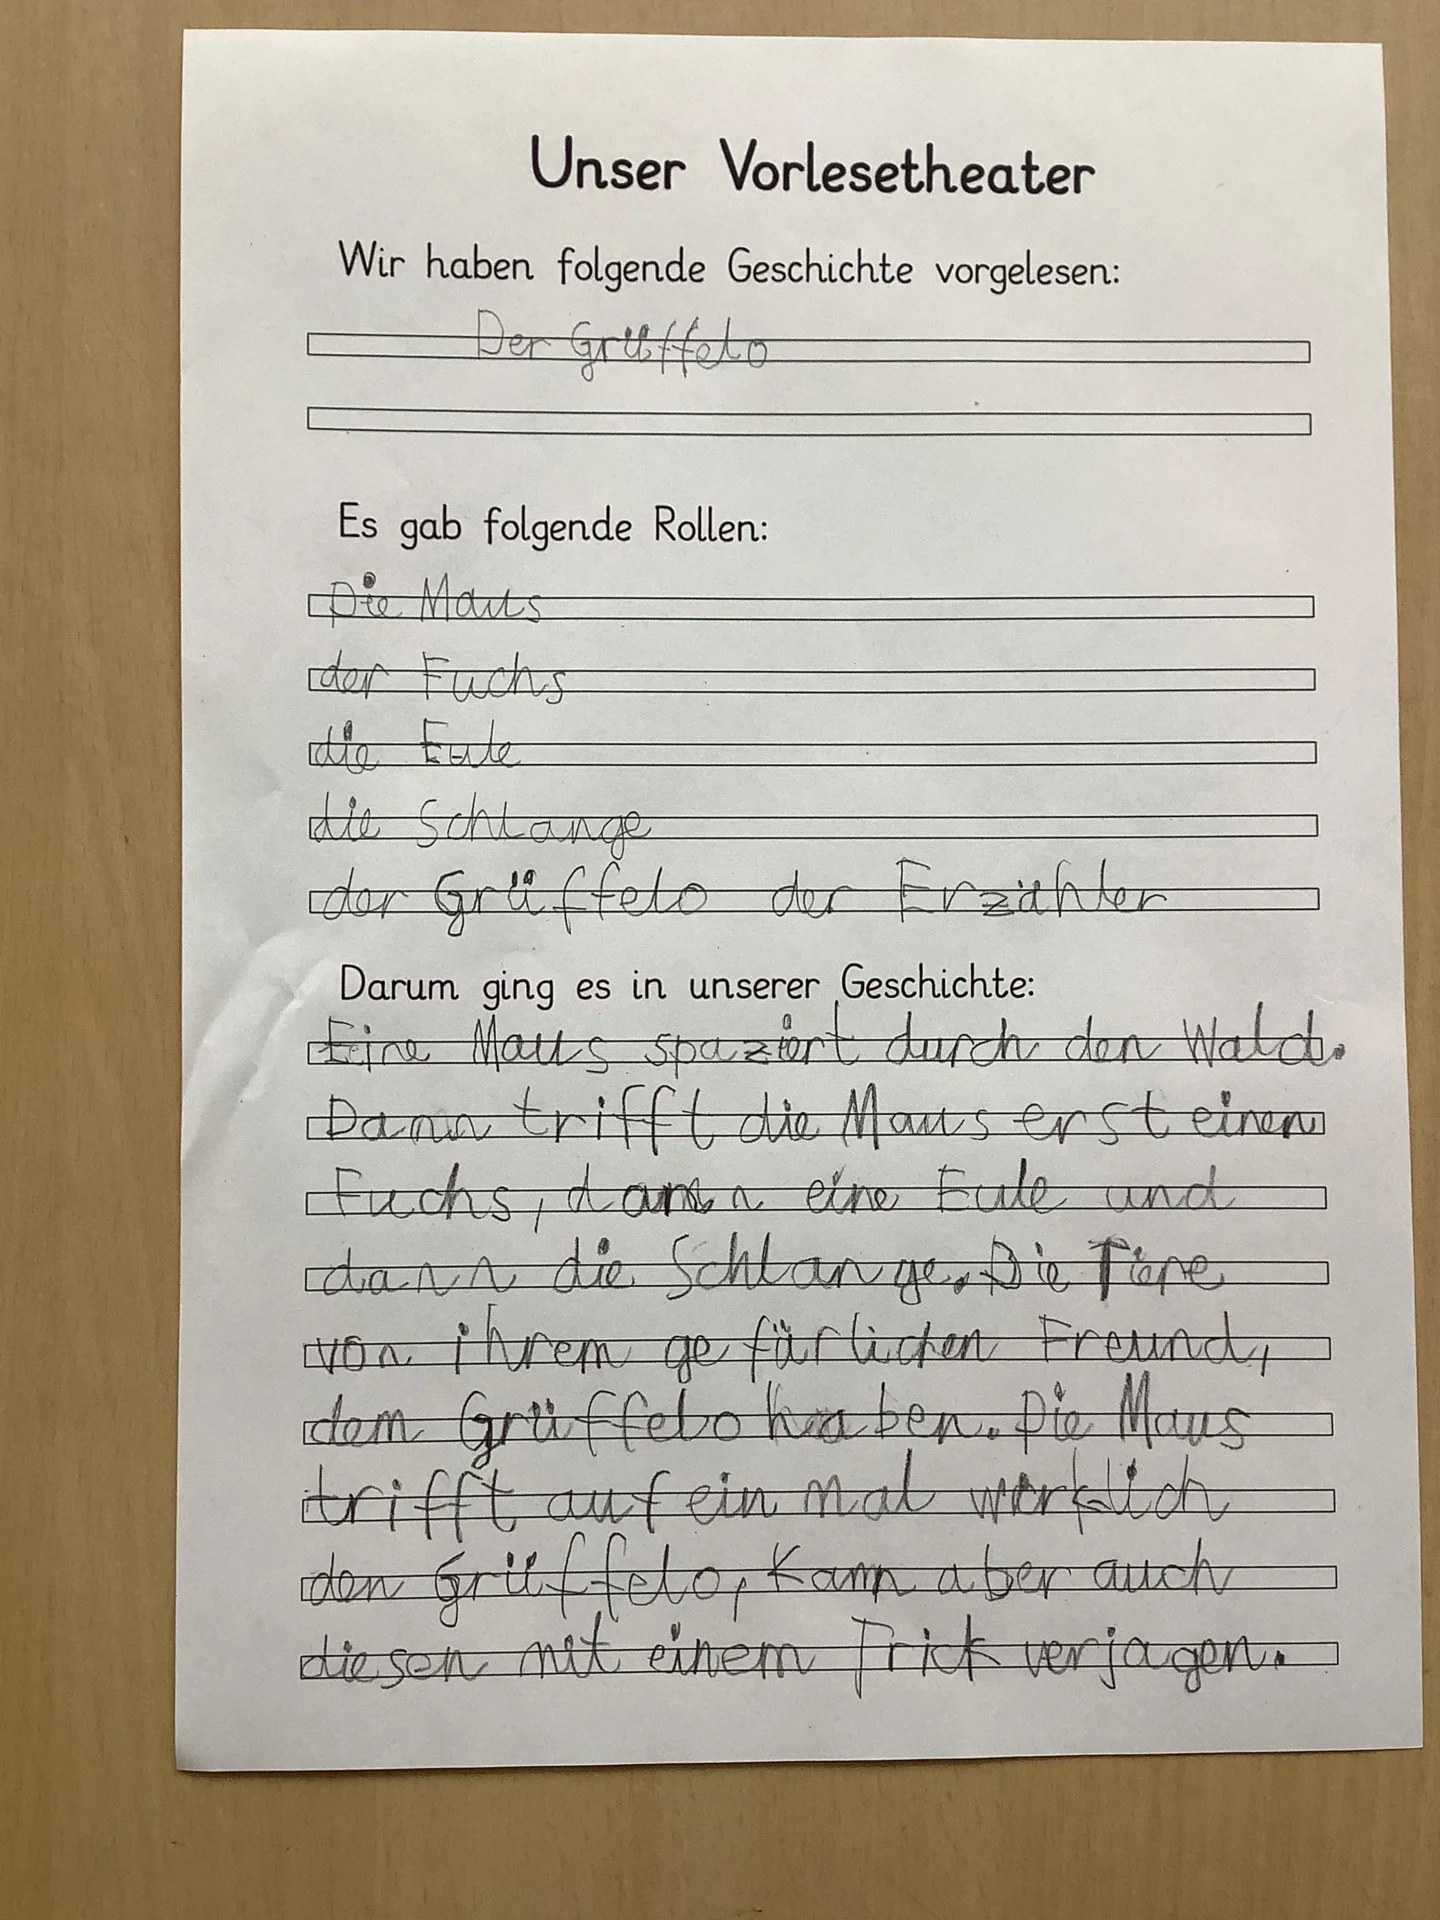 Unser Vorlesetheater
Wir haben folgende Geschichte vorgelesen:
Der Grüffelo
Es gab folgende Rollen:
Die Maus
der Fuchs
die Eule
die Schlange
der Grüffelo der Erzähler
Darum ging es in unserer Geschichte:
Eine Maus spaziert durch den Wald.
Dann trifft die Maus erst einen
Fuchs, dann eine Eule und
dann die Schlange. Die Tiere
von ihrem gefärlichen Freund,
dem Grüffelo haben. Die Maus
trifft auf ein mal wirklich
den Grüffelo, kann aber auch
diesen mit einem Trick verjagen.